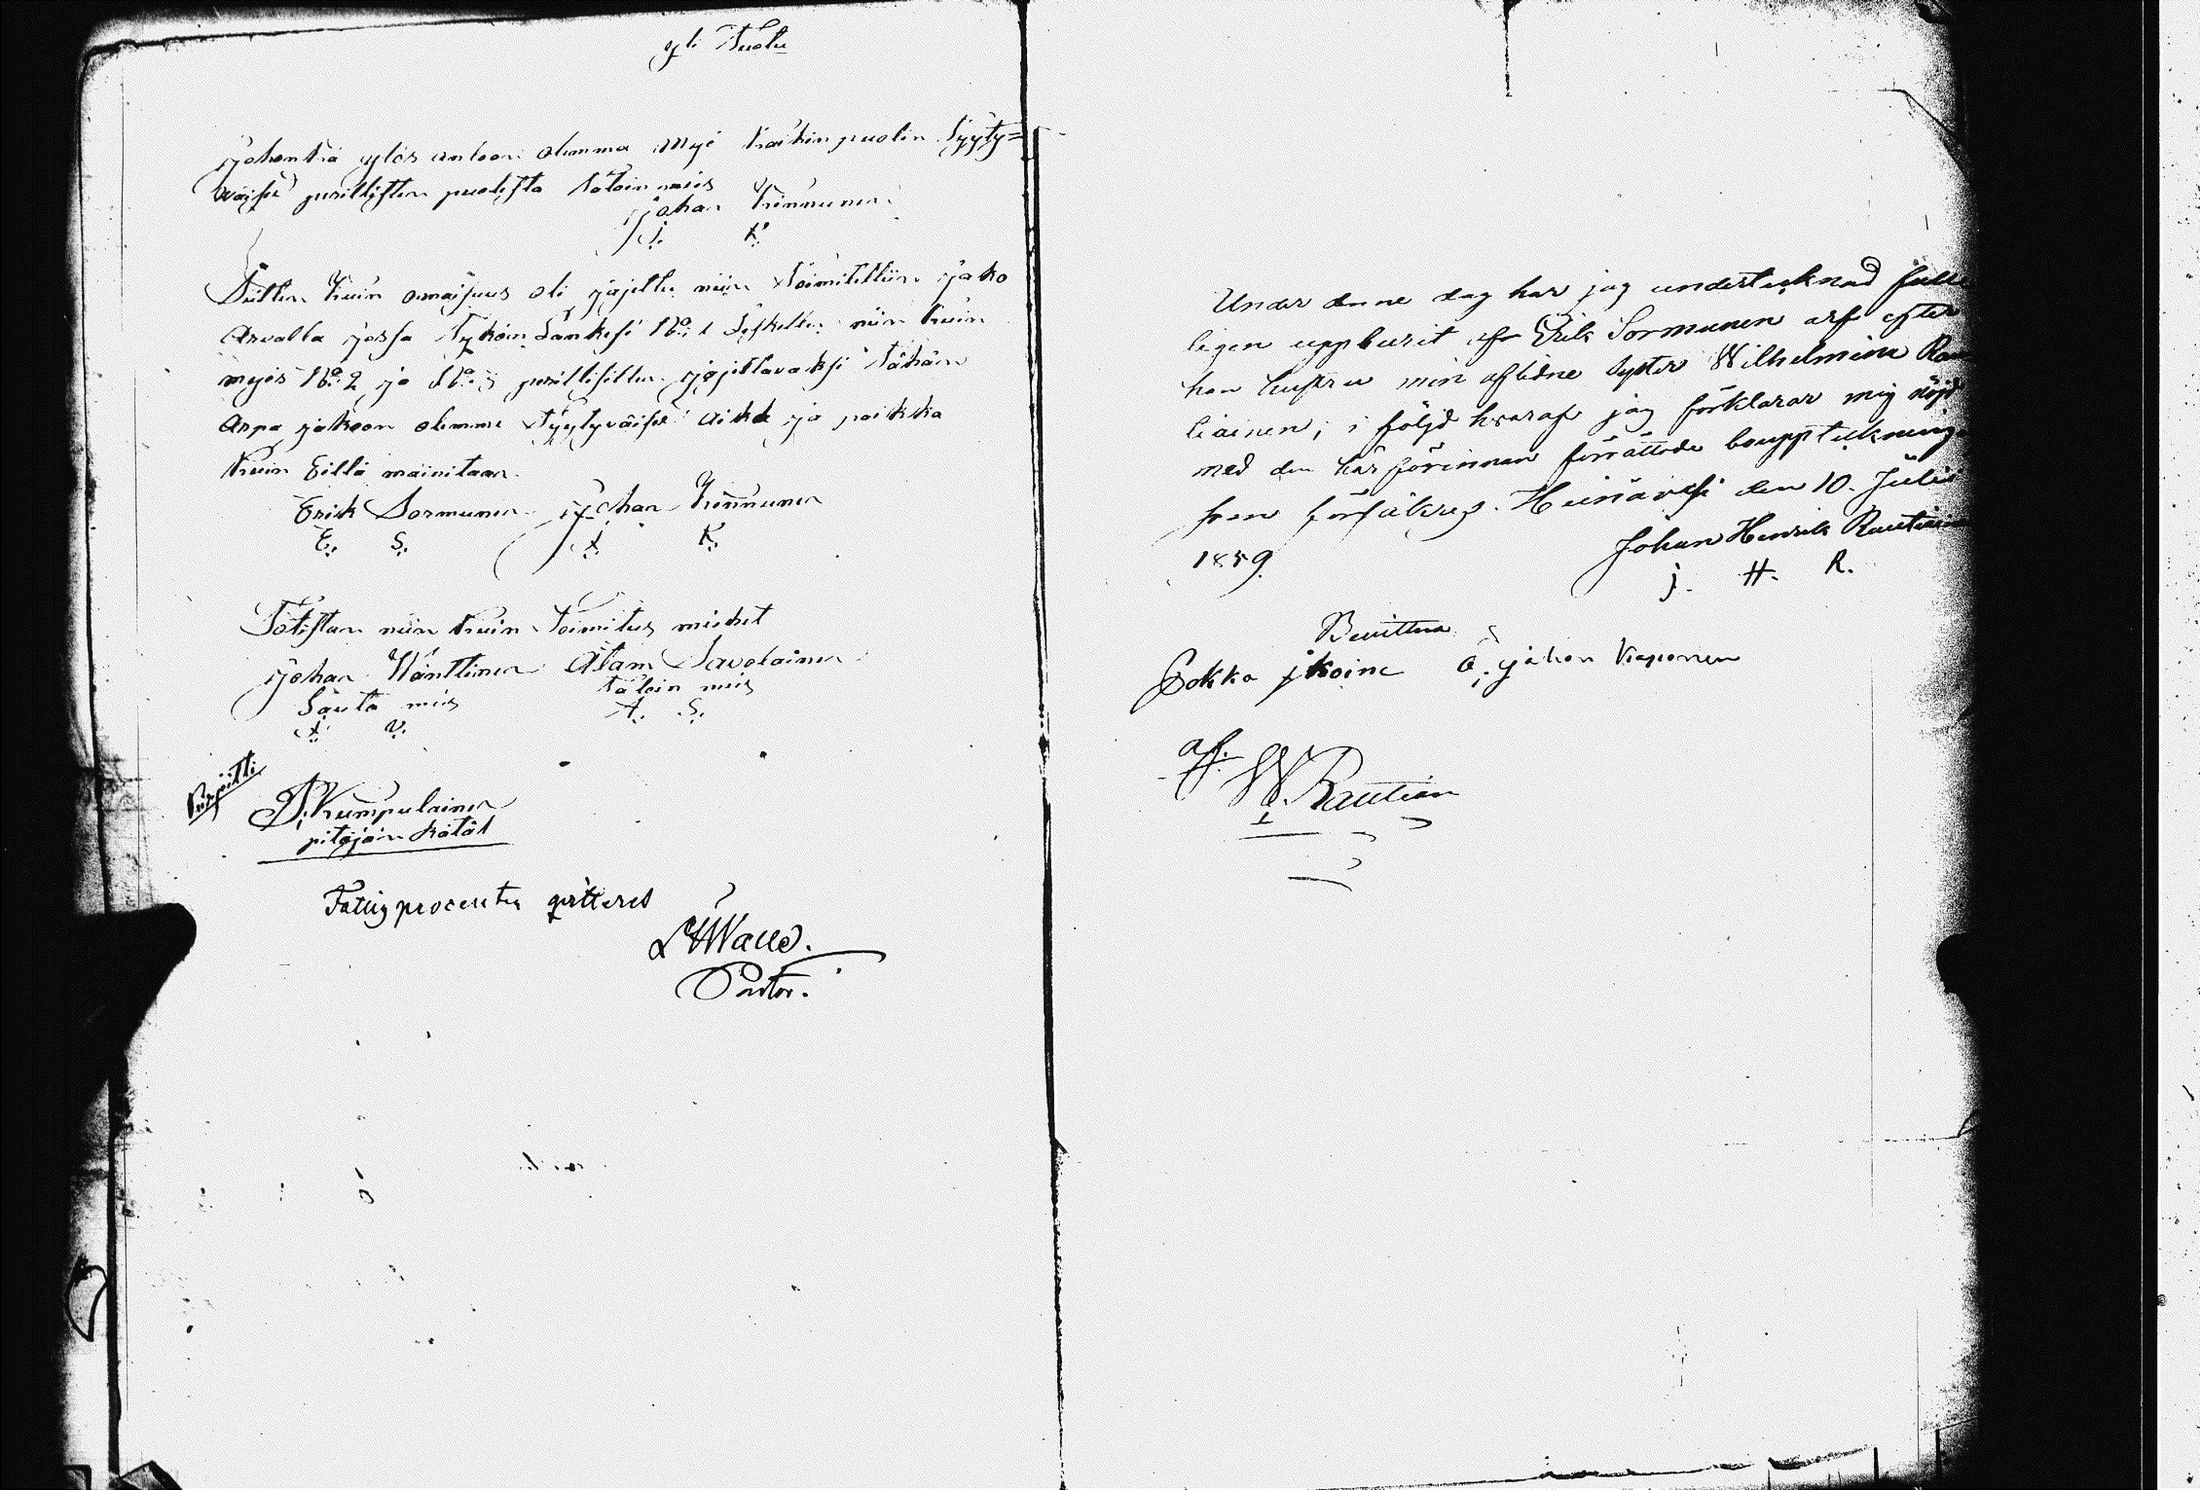 yli Tuotu
Johonka ylös antoon olemma myö kaikin puolin tyyty=
wäiset perillisten puolesta taloin mies
Johan Kinnunen
J. K.
Sitten kuin omaisuus oli jajettu niin toimitettiin jako
Arvalla jossa tykoin Lankesi No 1 Leskellen niin kuin
myös No 2 ja No 3 perillisillen jajettavaksi tähän
Arpa jakoon olemme tyytyväiset aika ja paikka
kuin Eillä mainitaan.
Erik Sormunen Johan Kinnunen
E. S. J. K.
Totistan niin kuin toimitus miehet
Johan Wänttinen Atam Savolainen
Lauta mies taloin mies
J. W. A. S.
Kirjoitti
Kumpulainen
pitäjän Räätäl
Fattigprocenten qvitteras
Pastor.
Under denne dag har jag undertecknad fulle
ligen uppburit af Erik Sormunen arf efter
han hustru min aflidne syster Wilhelmina Rau
tiainen, i följd hvaraf jag förklarar mig nöjd
med den här förinnan förrättade bouppteckning
som försäkras. Heinävesi den 10. Julii
1859. Johan Henrik Rautiain
J. H. R.
Bevittna
Pokka Johan Kaponen
af.
W. Rautian